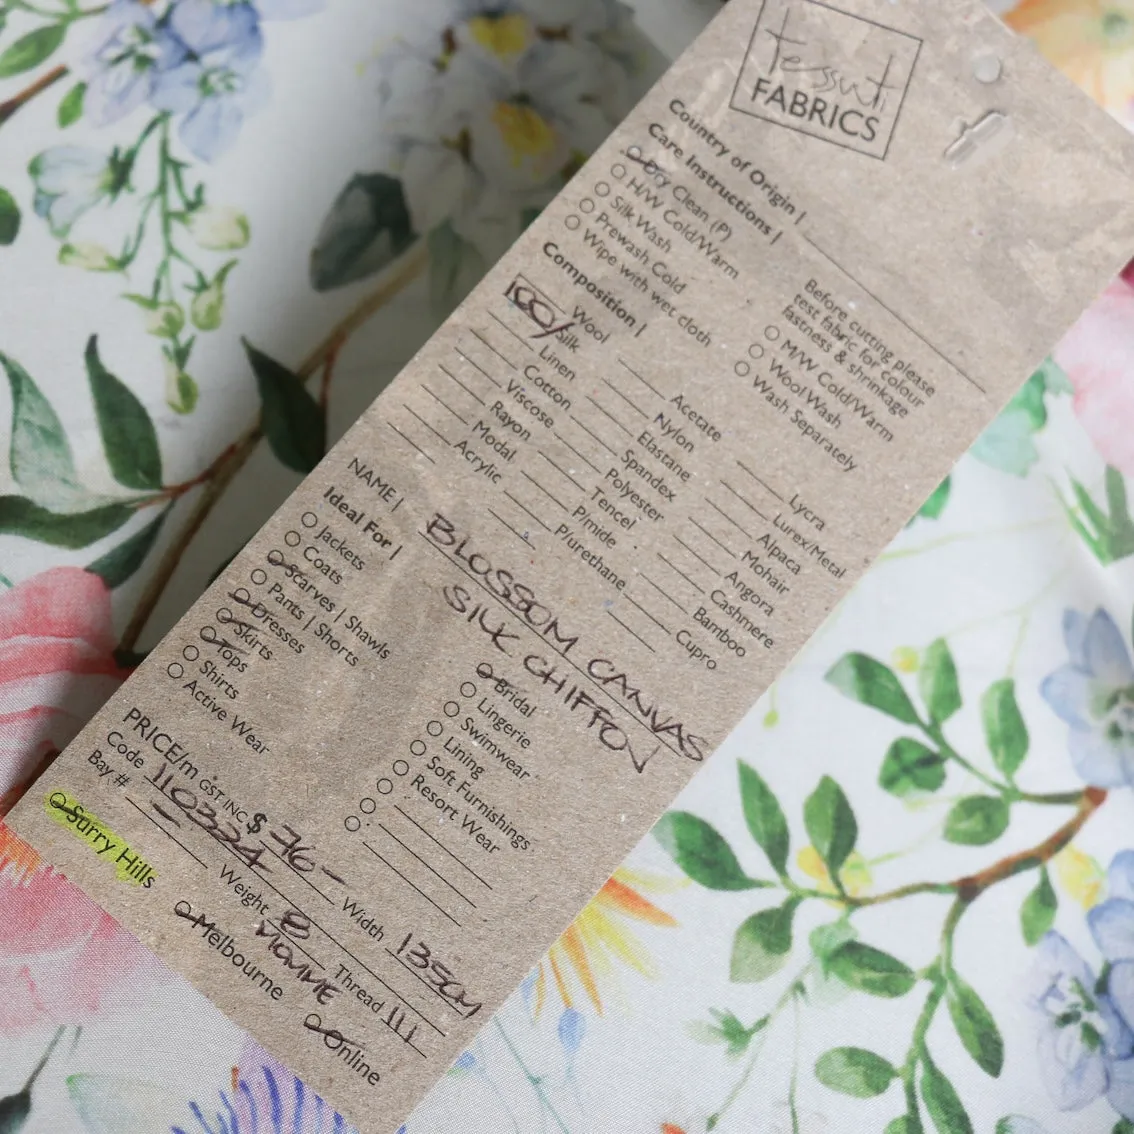 tessuti
FABRICS
Country of Origin |
Care Instructions |
Dry Clean (P)
H/W Cold/Warm
Silk Wash
Prewash Cold
Wipe with wet cloth
Before cutting please
test fabric for colour
fastness & shrinkage
M/W Cold/Warm
Wool Wash
Wash Separately
Composition |
Wool
100% Silk
Linen
Cotton
Viscose
Rayon
Modal
Acrylic
Acetate
Nylon
Elastane
Spandex
Polyester
Tencel
P/mide
P/urethane
Lycra
Lurex/Metal
Alpaca
Mohair
Angora
Cashmere
Bamboo
Cupro
NAME | BLOSSOM CANVAS
SILK CHIFFON
Ideal For |
Jackets
Coats
Scarves | Shawls
Pants | Shorts
Dresses
Skirts
Tops
Shirts
Active Wear
Bridal
Lingerie
Swimwear
Lining
Soft Furnishings
Resort Wear
PRICE/m GST INC $ 76- Width 135CM
Code 110324 Weight 8 MOMME Thread
Bay #
Surry Hills
Melbourne
Online